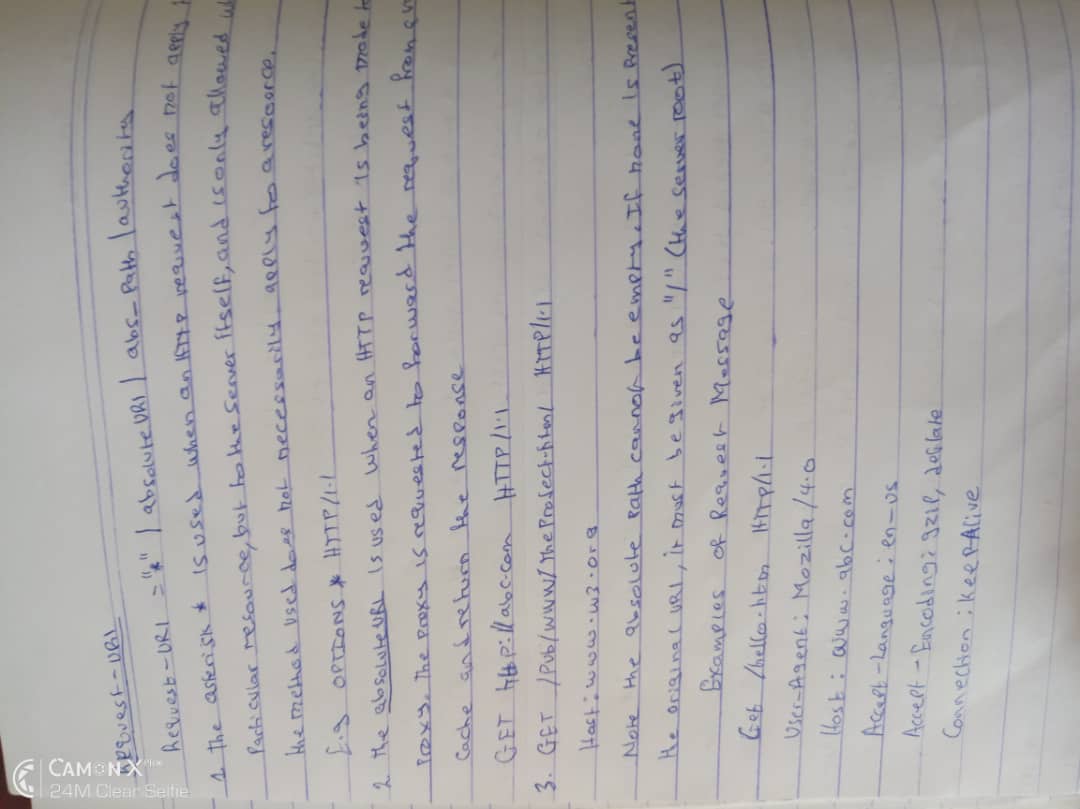 CAMON X
24M Clear Selfie
Request-URI
Request-URI = "*" | absoluteURI | abs_Path | authority
1 The asterisk * is used when an HTTP request does not apply
Particular resource, but to the server itself, and is only allowed
the method used does not necessarily apply to a resource.
E.g OPTIONS * HTTP/1.1
2 The absoluteURI is used when an HTTP request is being made
Proxy. The Proxy is requested to forward the request from a
Cache and return the response
GET http://abc.com HTTP/1.1
3. GET /Pub/WWW/TheProject.html HTTP/1.1
Host: www.w3.org
Note the absolute Path cannot be empty. If none is Present
the original URI, it must be given as "/" (the server root)
Examples of Request Message
Get /hello.htm HTTP/1.1
User-Agent: Mozilla/4.0
Host: www.abc.com
Accept-Language: en-us
Accept-Encoding: gzip, deflate
Connection: Keep-Alive